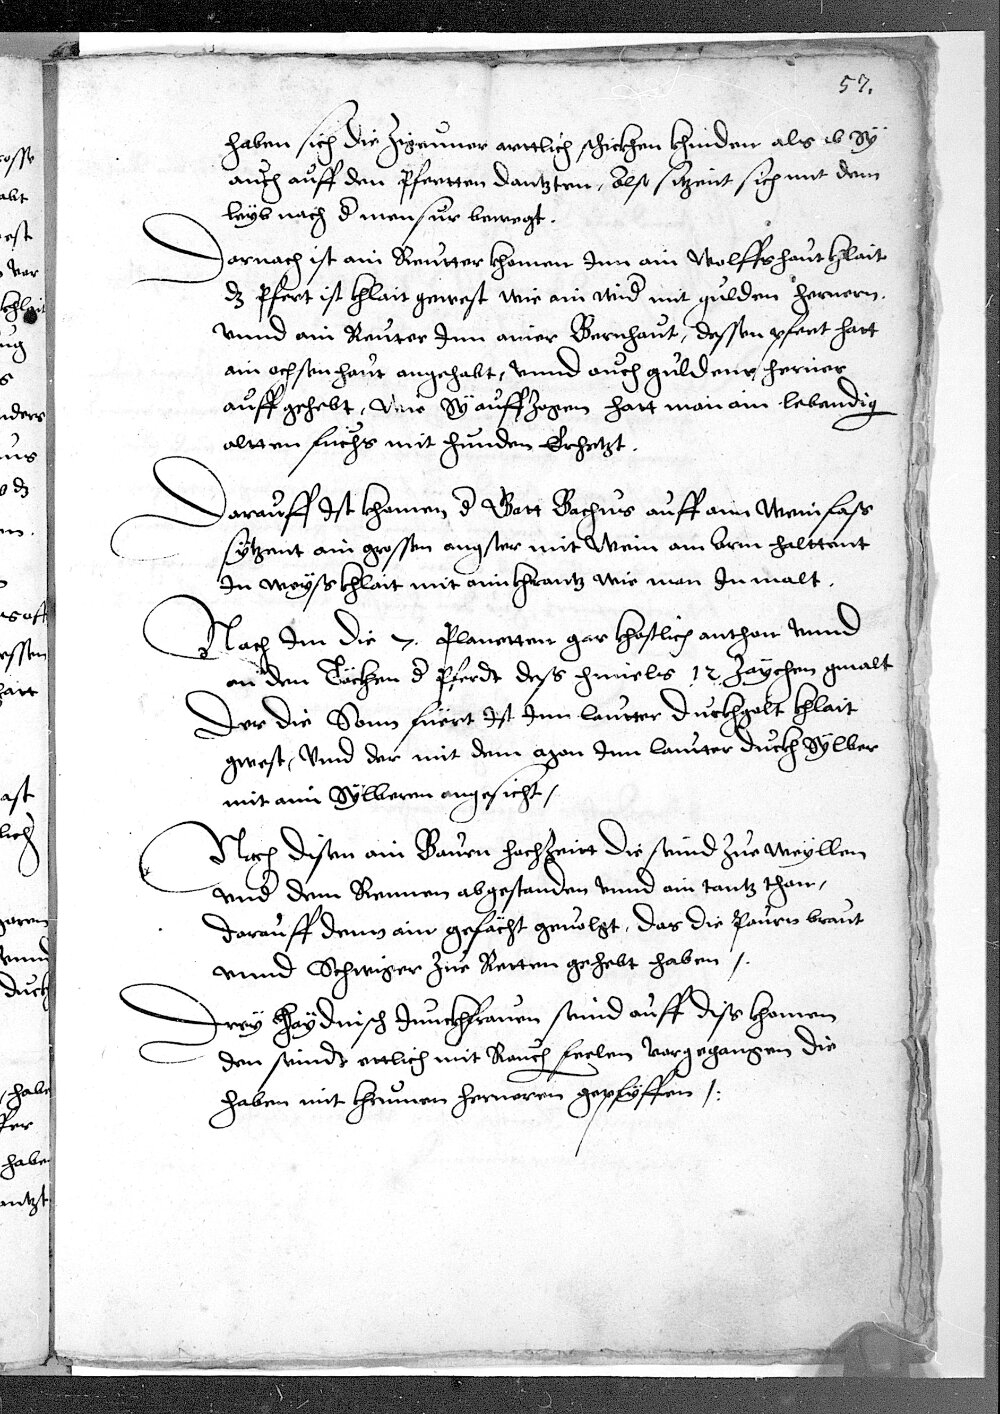 57.
haben sich die Zigeuner artlich schickhen khinden als ob Sy
auch auff den Pfertten dantzten, Also sitzent sich mit dem
leyb nach d mensur bewegt.
Darnach ist ain Reutter khomen Inn ain Wolffshaut khlait
dz Pfert ist khlait gewest wie ain wider mit gulden hernern.
vnnd ain Reutter Inn ainer Bernhaut, dessen pfert hatt
ain ochsenhaut angehabt, vnnd auch guldene herner
auff gehebt, Wie Sy auffZogen hatt man ain lebendig
altten fuchs mit hunden Erhetzt.
Darauff Ist khomen d Gott Bachus auff aim Weinfass
sytzent ain grossen angster mit Wein am arm halttent
In weyss khlait mit aim khrantz wie man In malt.
Nach Im die 7. Planetten gar khostlich anthon vnnd
an den Döckhen d Pferdt dess himels 12 Zaychen gmalt
Der die Sonn fuert Ist Inn lautter duckhgolt khlait
gwest, Vnd der mit dem Inn lautter duckh Sylber
mit aim Sylberen angesicht /
Nach disen ain Bauren hochZeit die seind Zue weyllen
vnd dem Rennen abgestanden vnnd ain tantz thon,
darauff dann ain gefächt gevolgt, das die Paurn braut
vnnd Schwiger Zue Retten gehebt haben /.
Drey Haydnisch Junckhfrauen seind auff diss khomen
den seindt ettlich mit Rauch feelen vorgegangen die
haben mit khrumen herneren gepfyffen /.